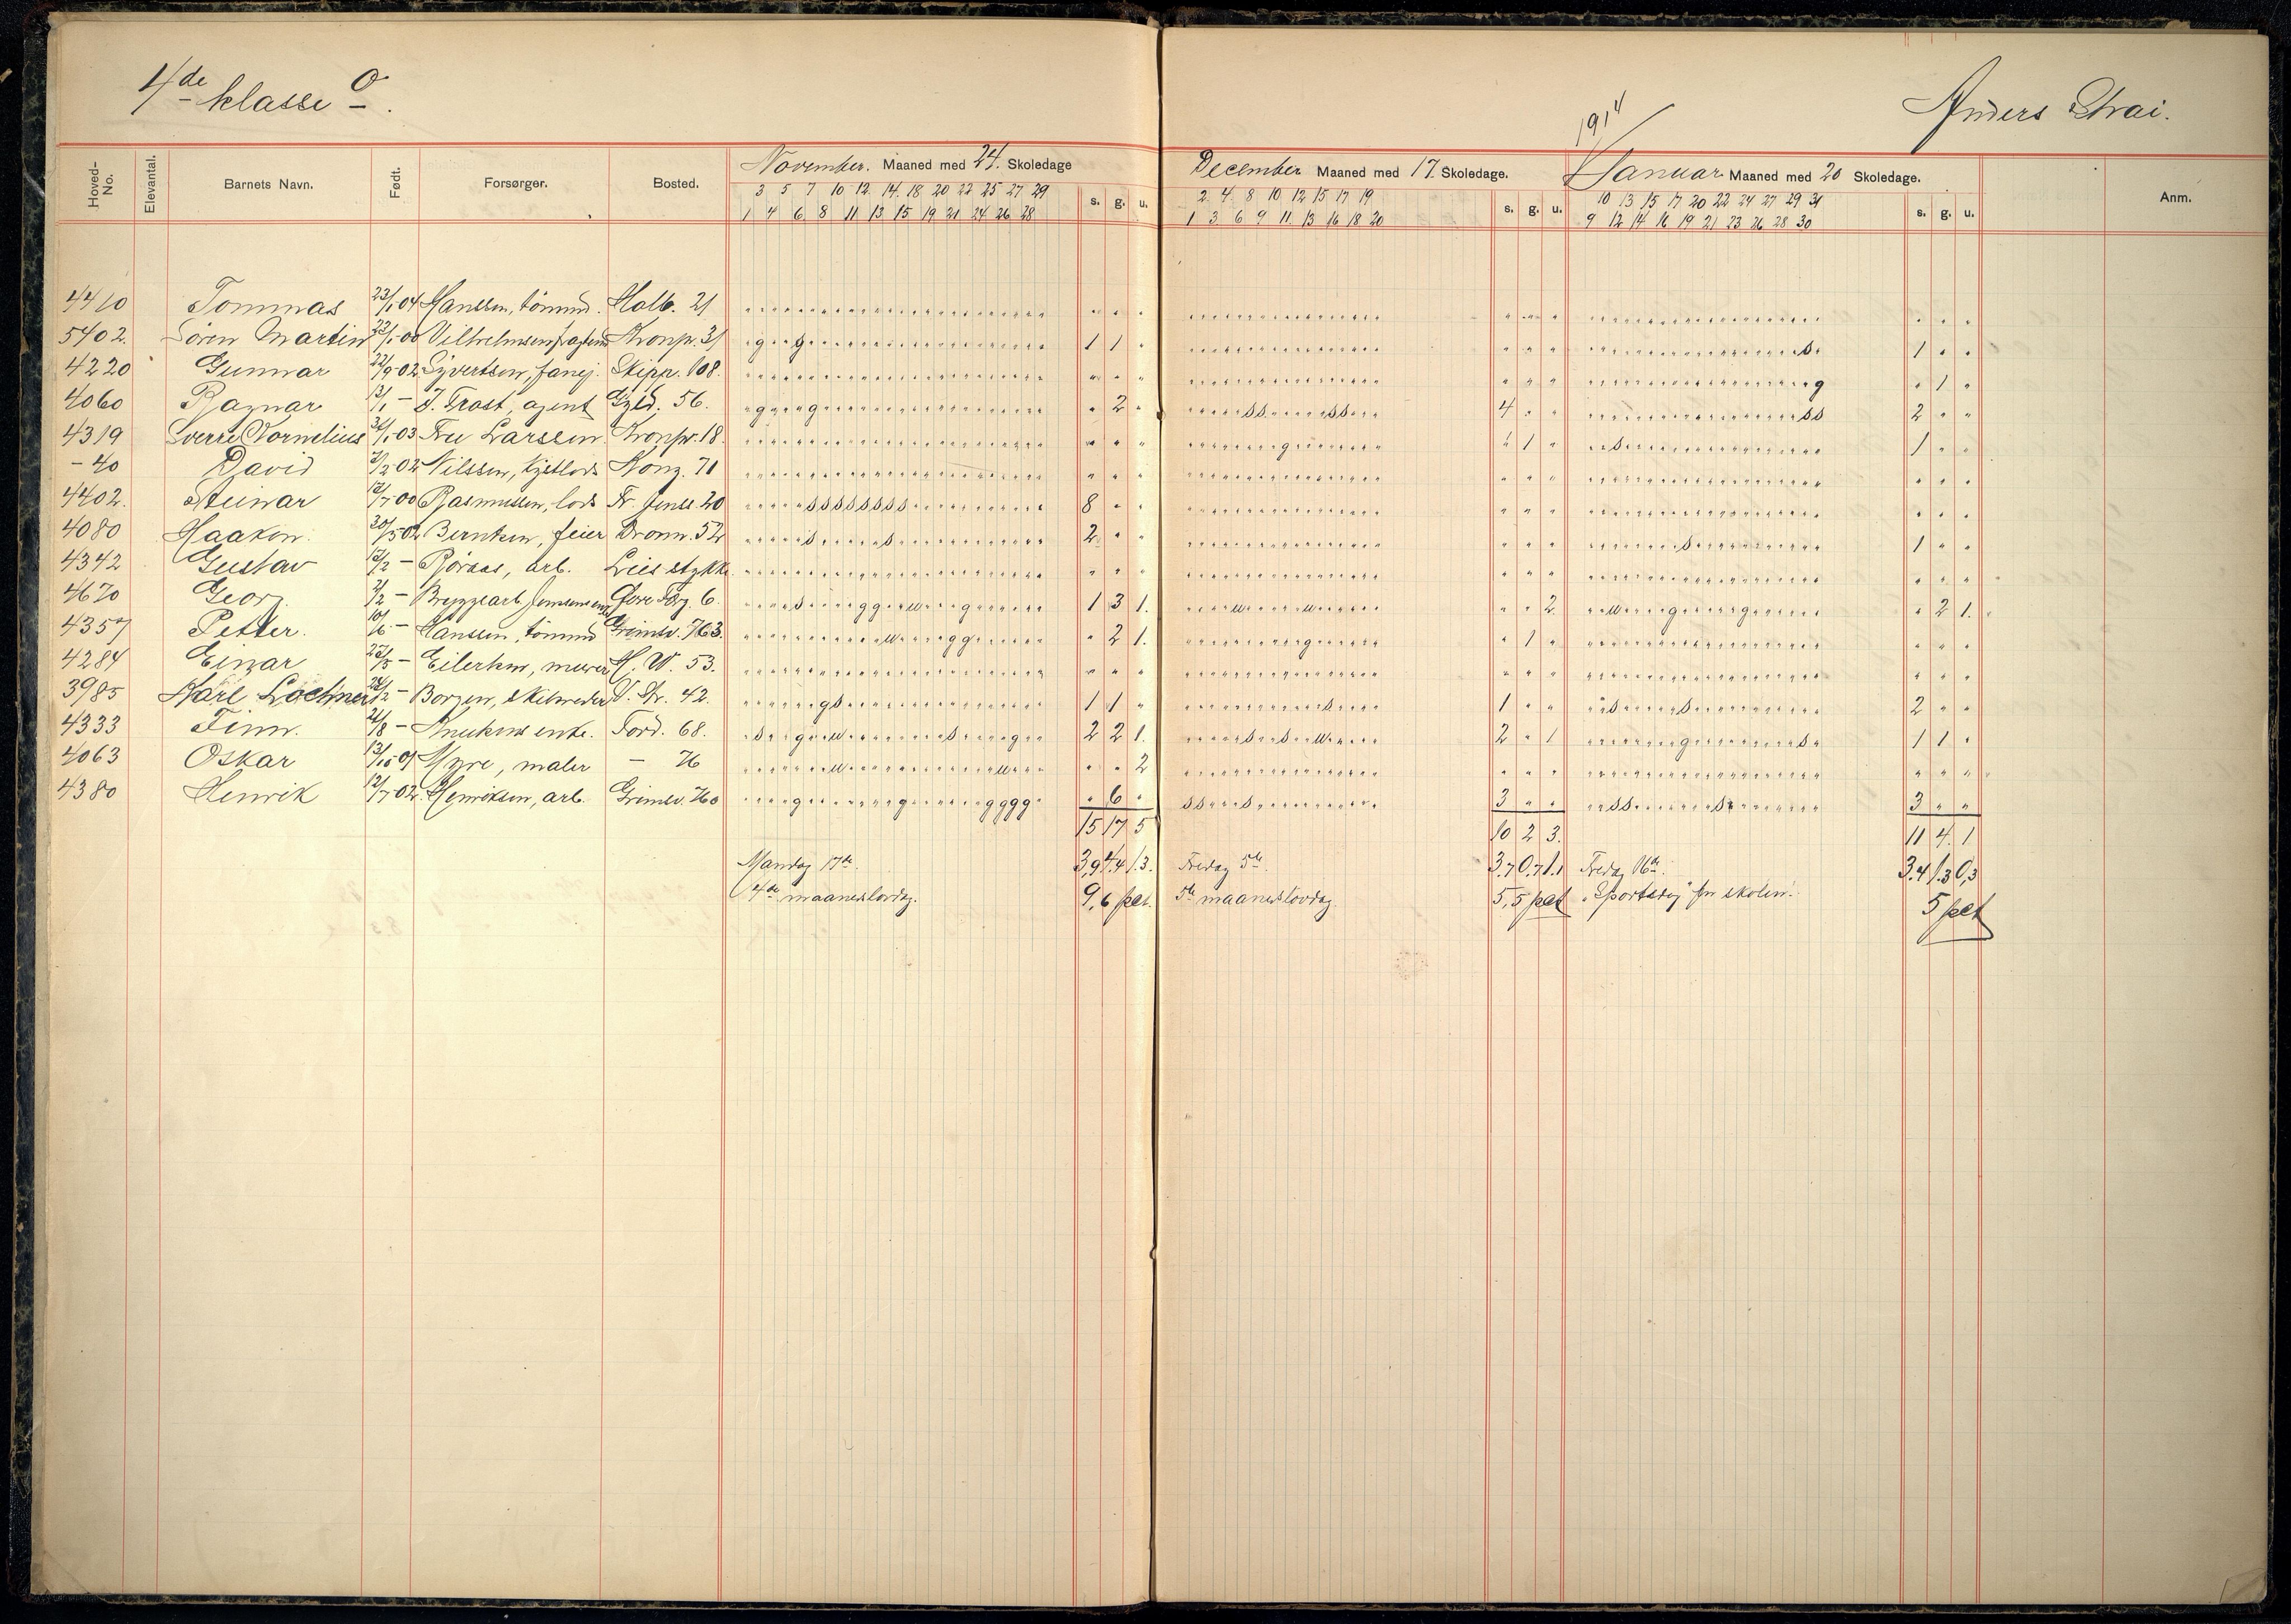 4de klasse O.
Anders Strai.
1914
Hoved-No. Elevantal. Barnets Navn. Født. Forsørger. Bosted. November. Maaned med 24. Skoledage s. g. u. December Maaned med 17. Skoledage. s. g. u. Januar Maaned med 20 Skoledage. s. g. u. Anm.
3 5 7 10 12 14 18 20 22 25 27 29 2 4 8 10 12 15 17 19 10 13 15 17 20 22 24 27 29 31
1 4 6 8 11 13 15 19 21 24 26 28 1 3 6 9 11 13 16 18 20 9 12 14 16 19 21 23 26 28 30
4410 Tommas 23/1 04 Hanssen, tömmd. Holb. 21
5402. Sören Martin 23/1 00 Vilhelmsen, Kronpr. 31 g g 1 1 s 1
4220 Gunnar 22/9 02 Syvertsen, Skipp. 108. g 1
4060 Ragnar 13/1 – J. Frost, agent Gyld. 56. g g 2 s s s s 4 s s 2
4319 Sverre Kornelius 03 Fru Larssen. Kronpr. 18. g 1 s 1
– 40 David 02 Nilssen, Kong. 71
4402. Steinar 12/7 00 Rasmussen, lods Fr. 20 s s s s s s s s 8
4080 Haakon. 20/5 02 Berntsen, feier Dronn. 52 s s 2 s 1
4342 Gustav 13/2 – Röraas, arb. Lies stykke
4670 Georg. 2/2 – Bryggearb. Torg. 6. s g g u g 1 3 1. u u 2 u g g 2 1.
4357 Petter. 10/6 – Hanssen, tömmd Grimsv. 763. u g g 2 1. g 1
4284 Einar – Eilertsen, murer H. W. 53.
3985 Karl Lochner 24/2 – Borgen, V. Str. 42. g s 1 1 s 1 s s 2
4333 Finn. 21/8 – Knutsens enke. Tord. 68. s g u s g 2 2 1. s s u 2 1 g s 1 1
4063 Oskar 13/10 01 Myre, maler – 76 u u 2
4380 Henrik 12/7 02. Henriksen, arb. Grimsv. 760 g g g g g g 6 s s s 3 s s s 3
15 17 5 10 2 3. 11 4. 1
Mandag 17de. 3,9 4.4 1.3. Fredag 5te. 3.7 0,7 1.1 Fredag 16de. 3.4 1.3 0,3
4de maanedslovdag. 9,6 pct. 5te maanedslovdag. 5,5 pct "Sportsdag" for skolen. 5 pct